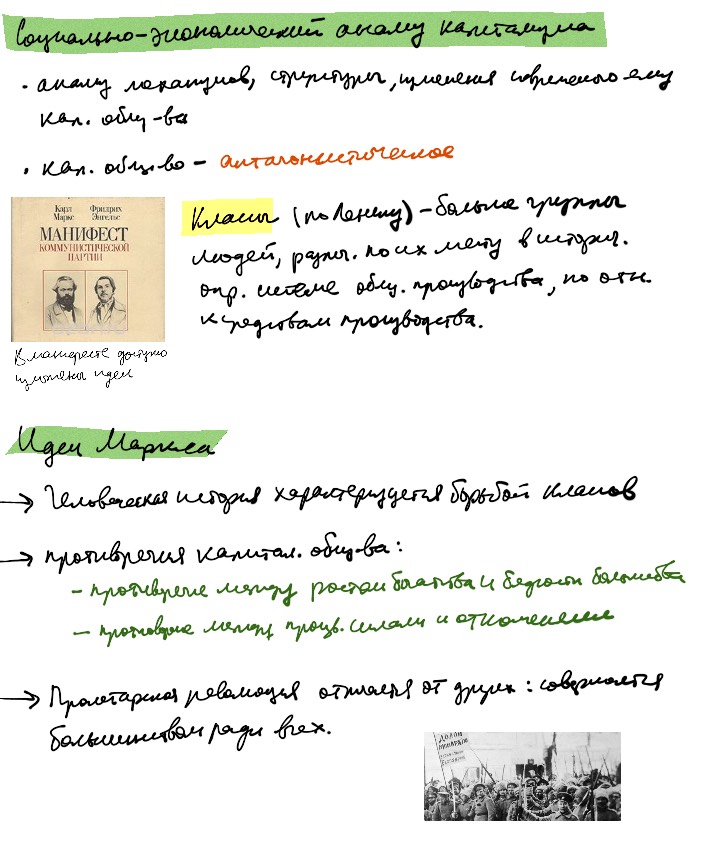 Социально-экономический анализ капитализма
· анализ механизмов, структуры, изменения современного ему
кап. общ-ва
· кап. общ-во – антагонистическое
Карл Маркс Фридрих Энгельс
МАНИФЕСТ
КОММУНИСТИЧЕСКОЙ
ПАРТИИ
В манифесте доступно
изложены идеи
Классы (по Ленину) – большие группы
людей, различ. по их месту в историч.
опр. системе общ. производства, по отн.
к средствам производства.
Идеи Маркса
→ Человеческая история характеризуется борьбой классов
→ противоречия капитал. общ-ва:
– противоречие между ростом богатства и бедности большинства
– противоречие между произв. силами и отношениями
→ Пролетарская революция отличается от других: совершается
большинством ради всех.
ДОЛОЙ
МОНАРХІЮ